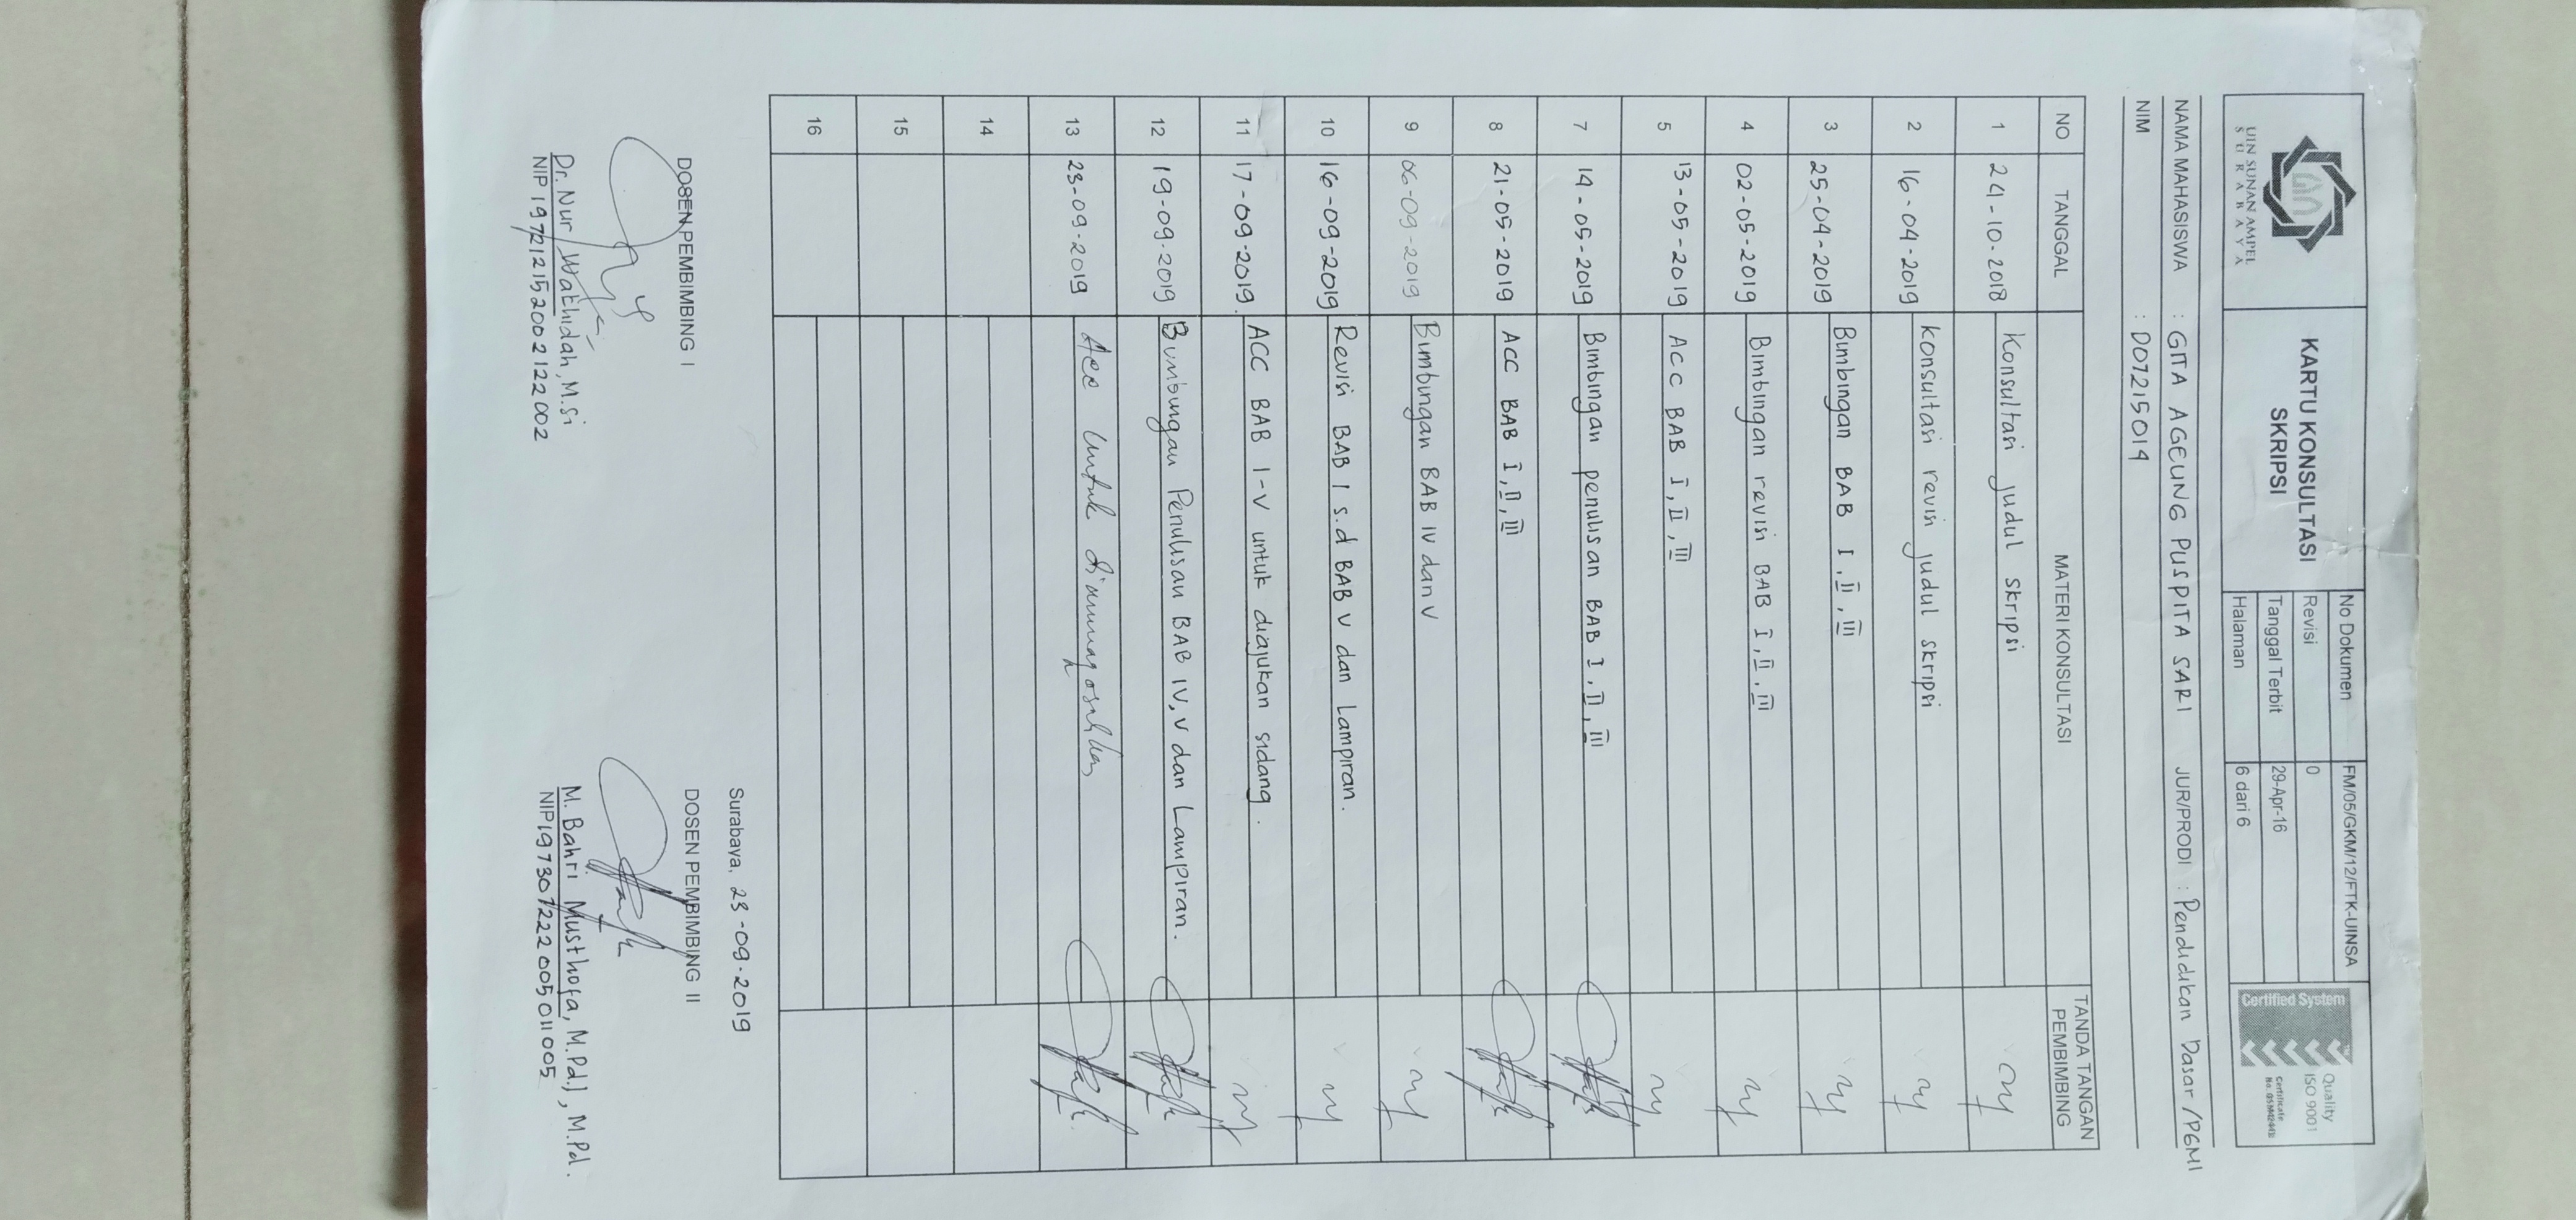 UIN SUNAN AMPEL
SURABAYA
KARTU KONSULTASI
SKRIPSI
No Dokumen FM/05/GKM/12/FTK-UINSA
Revisi 0
Tanggal Terbit 29-Apr-16
Halaman 6 dari 6
Certified System
Quality
ISO 9001
Certificate
NAMA MAHASISWA : GITA AGEUNG PUSPITA SARI JUR/PRODI : Pendidikan Dasar / PGMI
NIM : D07215014
NO TANGGAL MATERI KONSULTASI TANDA TANGAN PEMBIMBING
1 24-10-2018 Konsultasi judul skripsi
2 16-04-2019 Konsultasi revisi judul skripsi
3 25-04-2019 Bimbingan BAB I, II, III
4 02-05-2019 Bimbingan revisi BAB I, II, III
5 13-05-2019 ACC BAB I, II, III
7 14-05-2019 Bimbingan penulisan BAB I, II, III
8 21-05-2019 ACC BAB I, II, III
9 06-09-2019 Bimbingan BAB IV dan V
10 16-09-2019 Revisi BAB I s.d BAB V dan Lampiran.
11 17-09-2019. ACC BAB I-V untuk diajukan sidang.
12 19-09-2019 Bimbingan Penulisan BAB IV, V dan Lampiran.
13 23-09-2019 Acc untuk
14
15
16
Surabaya, 23-09-2019
DOSEN PEMBIMBING I DOSEN PEMBIMBING II
Dr. Nur Wakhidah, M.Si M. Bahri Musthofa, M.Pd.I, M.Pd.
NIP 197212152002122002 NIP 197307222005011005